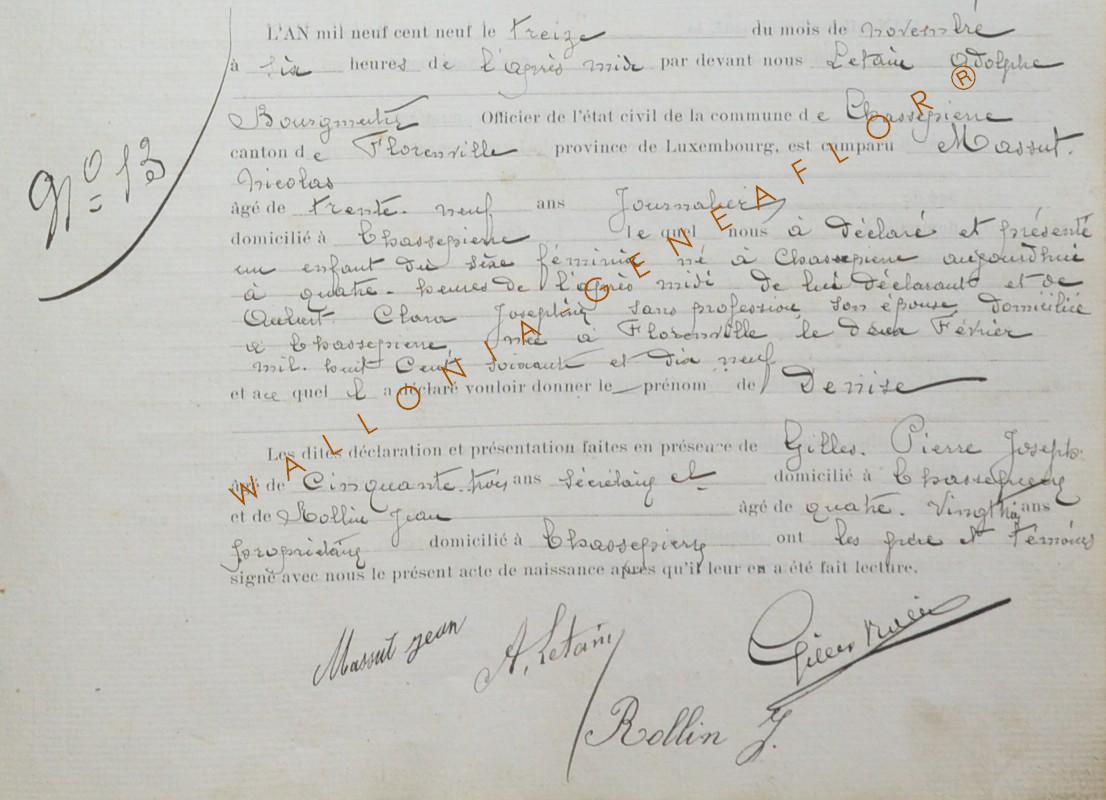 L'AN mil neuf cent neuf le treize du mois de novembre
à six heures de l'après midi par devant nous Letain Adolphe
Bourgmestre Officier de l'état civil de la commune de Chassepierre
N° 13
canton de Florenville province de Luxembourg, est comparu Massut.
Nicolas
âgé de trente. neuf ans Journalier
domicilié à Chassepierre le quel nous à déclaré et présenté
un enfant du sèxe féminin né à Chassepierre aujourdhui
à quatre. heures de l'après midi de lui déclarant et de
Aubert Clara Joséphine sans profession son épouse domiciliée
à Chassepierre, née à Florenville le deux Février
mil. huit Cent soixante et dix neuf
et a ce quel il a déclaré vouloir donner le prénom de Denise
Les dites déclaration et présentation faites en présence de Gilles. Pierre Joseph.
âgé de Cinquante.trois ans Sécrétaire et domicilié à Chassepierre
et de Rollin Jean âgé de quatre. Vingt ans
propriétaire domicilié à Chassepierre ont les père et témoins
signé avec nous le présent acte de naissance après qu'il leur en a été fait lecture.
Massut jean A. Letain Gilles
Rollin J.
WALLONIA-GENEAFLOR®